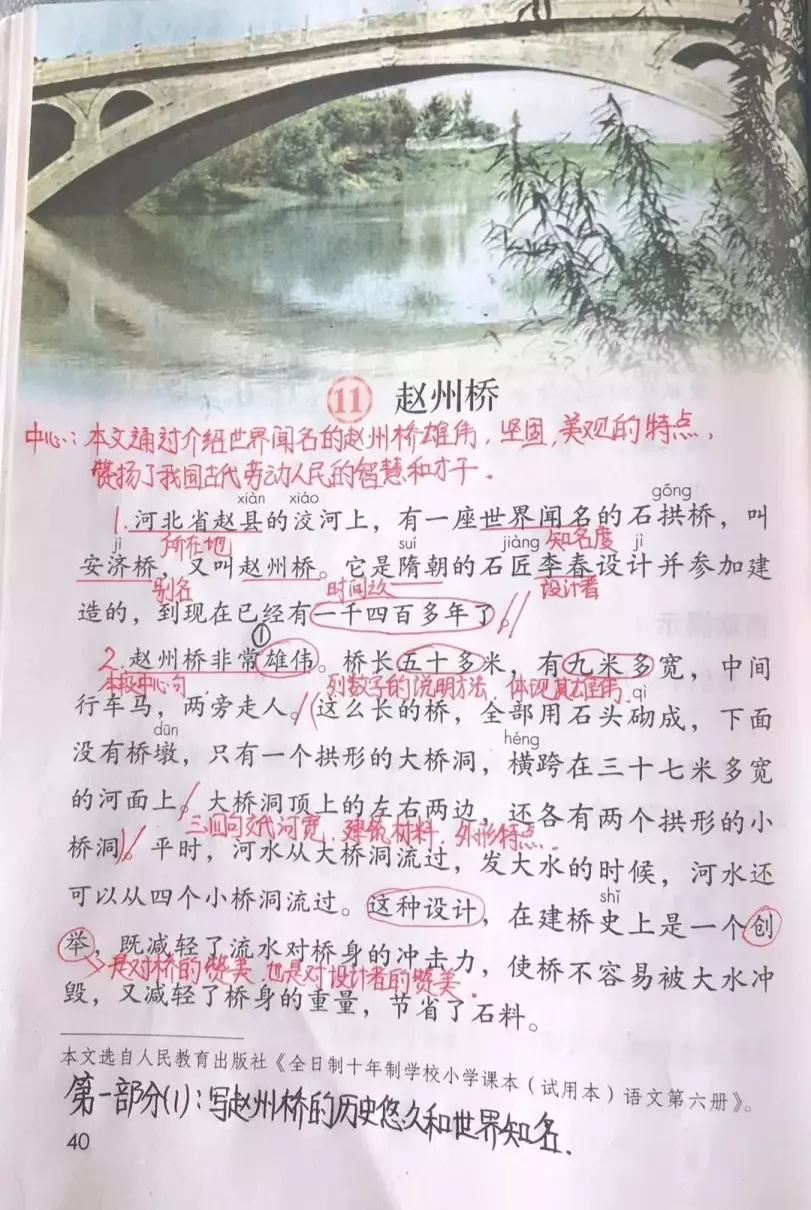 11 赵州桥
中心:本文通过介绍世界闻名的赵州桥雄伟,坚固,美观的特点,
赞扬了我国古代劳动人民的智慧和才干.
xiàn xiáo gǒng
1.河北省赵县的洨河上,有一座世界闻名的石拱桥,叫
jì 所在地 suí jiàng 知名度 jì
安济桥,又叫赵州桥。它是隋朝的石匠李春设计并参加建
别名 时间久 设计者
造的,到现在已经有一千四百多年了。
①
2.赵州桥非常雄伟。桥长五十多米,有九米多宽,中间
本段中心句 列数字的说明方法 体现其雄伟. qì
行车马,两旁走人。这么长的桥,全部用石头砌成,下面
dūn héng
没有桥墩,只有一个拱形的大桥洞,横跨在三十七米多宽
的河面上。大桥洞顶上的左右两边,还各有两个拱形的小
三四句交代河宽、建筑材料、外形特点.
桥洞。平时,河水从大桥洞流过,发大水的时候,河水还
shǐ
可以从四个小桥洞流过。这种设计,在建桥史上是一个创
举,既减轻了流水对桥身的冲击力,使桥不容易被大水冲
是对桥的赞美 也是对设计者的赞美.
毁,又减轻了桥身的重量,节省了石料。
本文选自人民教育出版社《全日制十年制学校小学课本(试用本)语文第六册》。
第一部分(1):写赵州桥的历史悠久和世界知名.
40